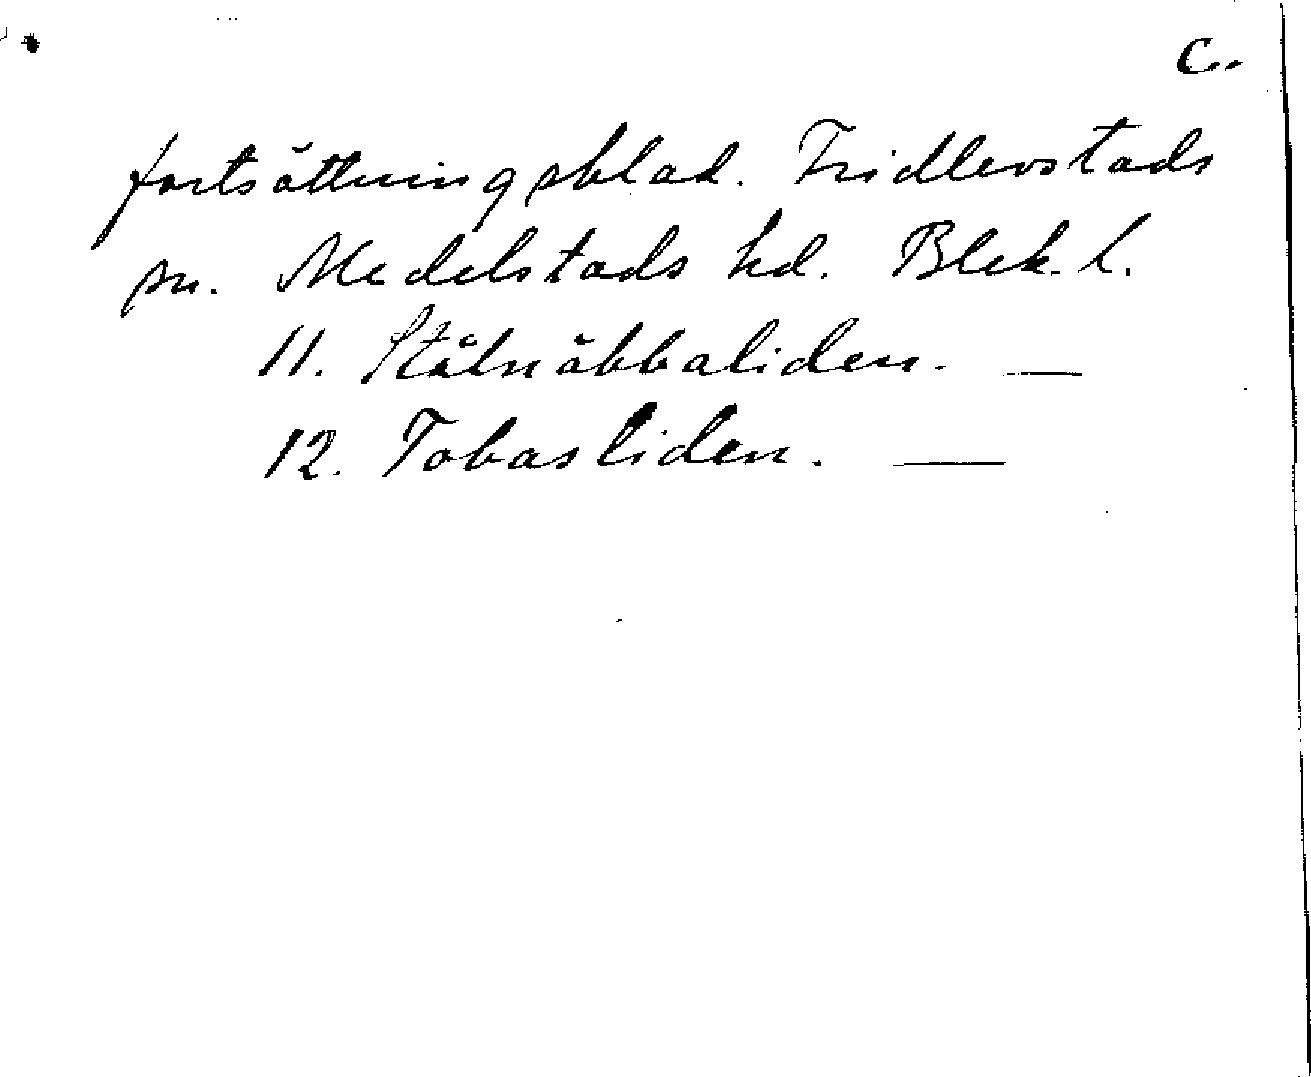 C..
fortsättningsblad. Fridlevstads
sn. Medelstads hd. Blek. l.
11. Stålnäbbaliden. —
12. Tobasliden. —